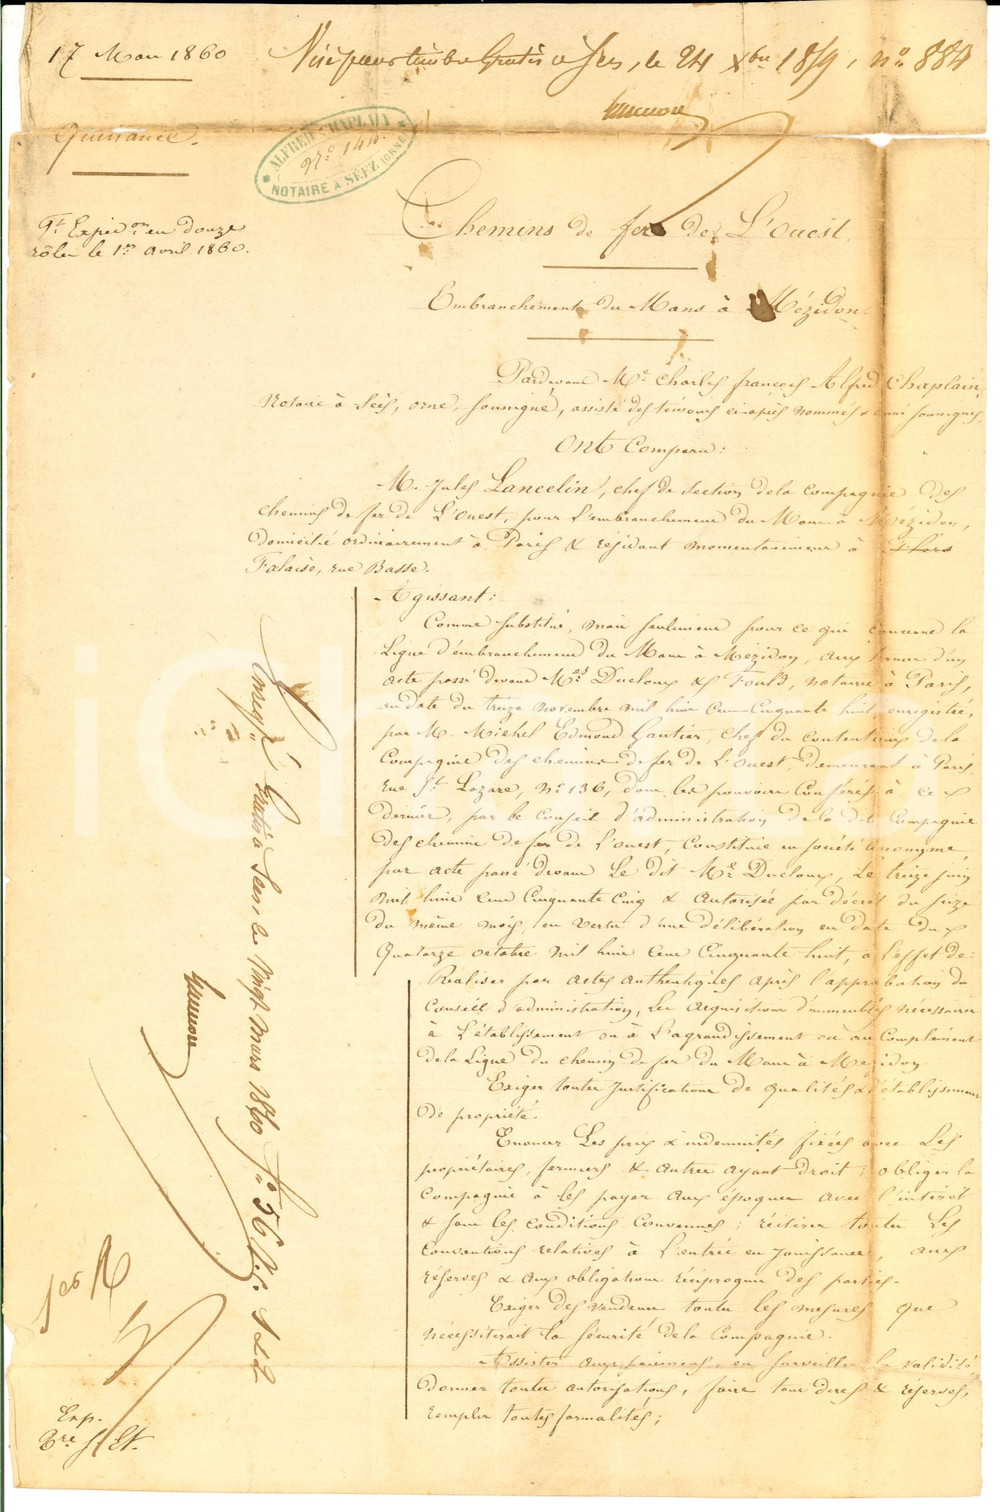 17 Mars 1860
Visé pour timbre Gratis à Sées, le 24 Xbre 1859, n° 884
Quittance.
ALFRED CHAPLAIN
N° 144
NOTAIRE À SÉEZ (ORNE)
Gt Expéd.on en douze
rôles le 1er avril 1860.
Chemins de fer de L'Ouest.
Embranchement du Mans à Mézidon.
Pardevant Me Charles françois Alfred Chaplain,
Notaire à Séès, orne, soussigné, assisté des témoins ci-après nommés & aussi soussignés.
Ont Comparu:
M. Jules Lancelin, chef de Section de la Compagnie des
chemins de fer de L'Ouest, pour l'embranchement du Mans à Mézidon,
Domicilié ordinairement à Paris & résidant momentanément à
Falaise, rue Basse.
Agissant:
Comme substitué, mais seulement pour ce qui concerne la
Ligne d'embranchement du Mans à Mézidon, aux termes d'un
acte passé devant Mes Ducloux & Fould, notaires à Paris,
en date du treize novembre mil huit Cent Cinquante huit enregistré,
par M. Michel Edmond Gautier, Chef du Contentieux de la
Compagnie des chemins de fer de L'Ouest, demeurant à Paris
rue St Lazare, N° 136, dans les pouvoirs Conférés à ce
dernier, par le Conseil d'administration de la dite Compagnie
des chemins de fer de l'ouest, Constituée en société anonyme
par acte passé devant le dit Me Ducloux, Le treize juin
mil huit Cent Cinquante Cinq & Autorisée par décret du seize
du même mois, en vertu d'une délibération en date du
Quatorze octobre mil huit Cent Cinquante huit, à l'effet de:
Réaliser par actes authentiques après l'approbation du
Conseil d'administration, Les Acquisitions d'immeubles nécessaires
à L'établissement ou à L'agrandissement ou au Complément
de la Ligne du chemin de fer du Mans à Mezidon
Exiger toutes justifications de qualités & d'établissement
de propriété.
Enoncer Les prix & indemnités fixées avec Les
propriétaires, fermiers & autres ayant-droit; obliger la
Compagnie à les payer aux époques avec l'intérêt
& sous les conditions Convenues; réitérer toutes Les
Conventions relatives à L'entrée en jouissance, aux
réserves & aux obligations réciproques des parties.
Exiger des vendeurs toutes les mesures que
nécessiterait la sécurité de la Compagnie.
Assister aux paiements, en surveiller la validité
Donner toutes autorisations, faire tous dires & réserves,
remplir toutes formalités;
Enregistré Gratis à Sées le Vingt Mars 1860 fo 56
Exp.